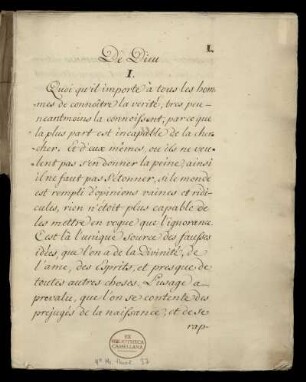 1.
De Dieu
I.
Quoi qu'il importe à tous les hom
mes de connoître la verité, tres peu
neantmoins la connoissent; parce que
la plus part est incapable de la cher
cher. Et d'eux mêmes, ou ils ne veu-
lent pas s'en donner la peine; ainsi
il ne faut pas s'étonner, si le monde
est rempli d'opinions vaines et ridi
cules, rien n'étoit plus capable de
les mettre en vogue que l'ignorance
C'est là l'unique source des fausses
idées, que l'on a de la Divinité, de
l'ame, des Esprits, et presque de
toutes autres choses. L'usage a
prevalu, que l'on se contente des
prejugés de la naissance; et de se
rap-
EX
BIBLIOTHECA